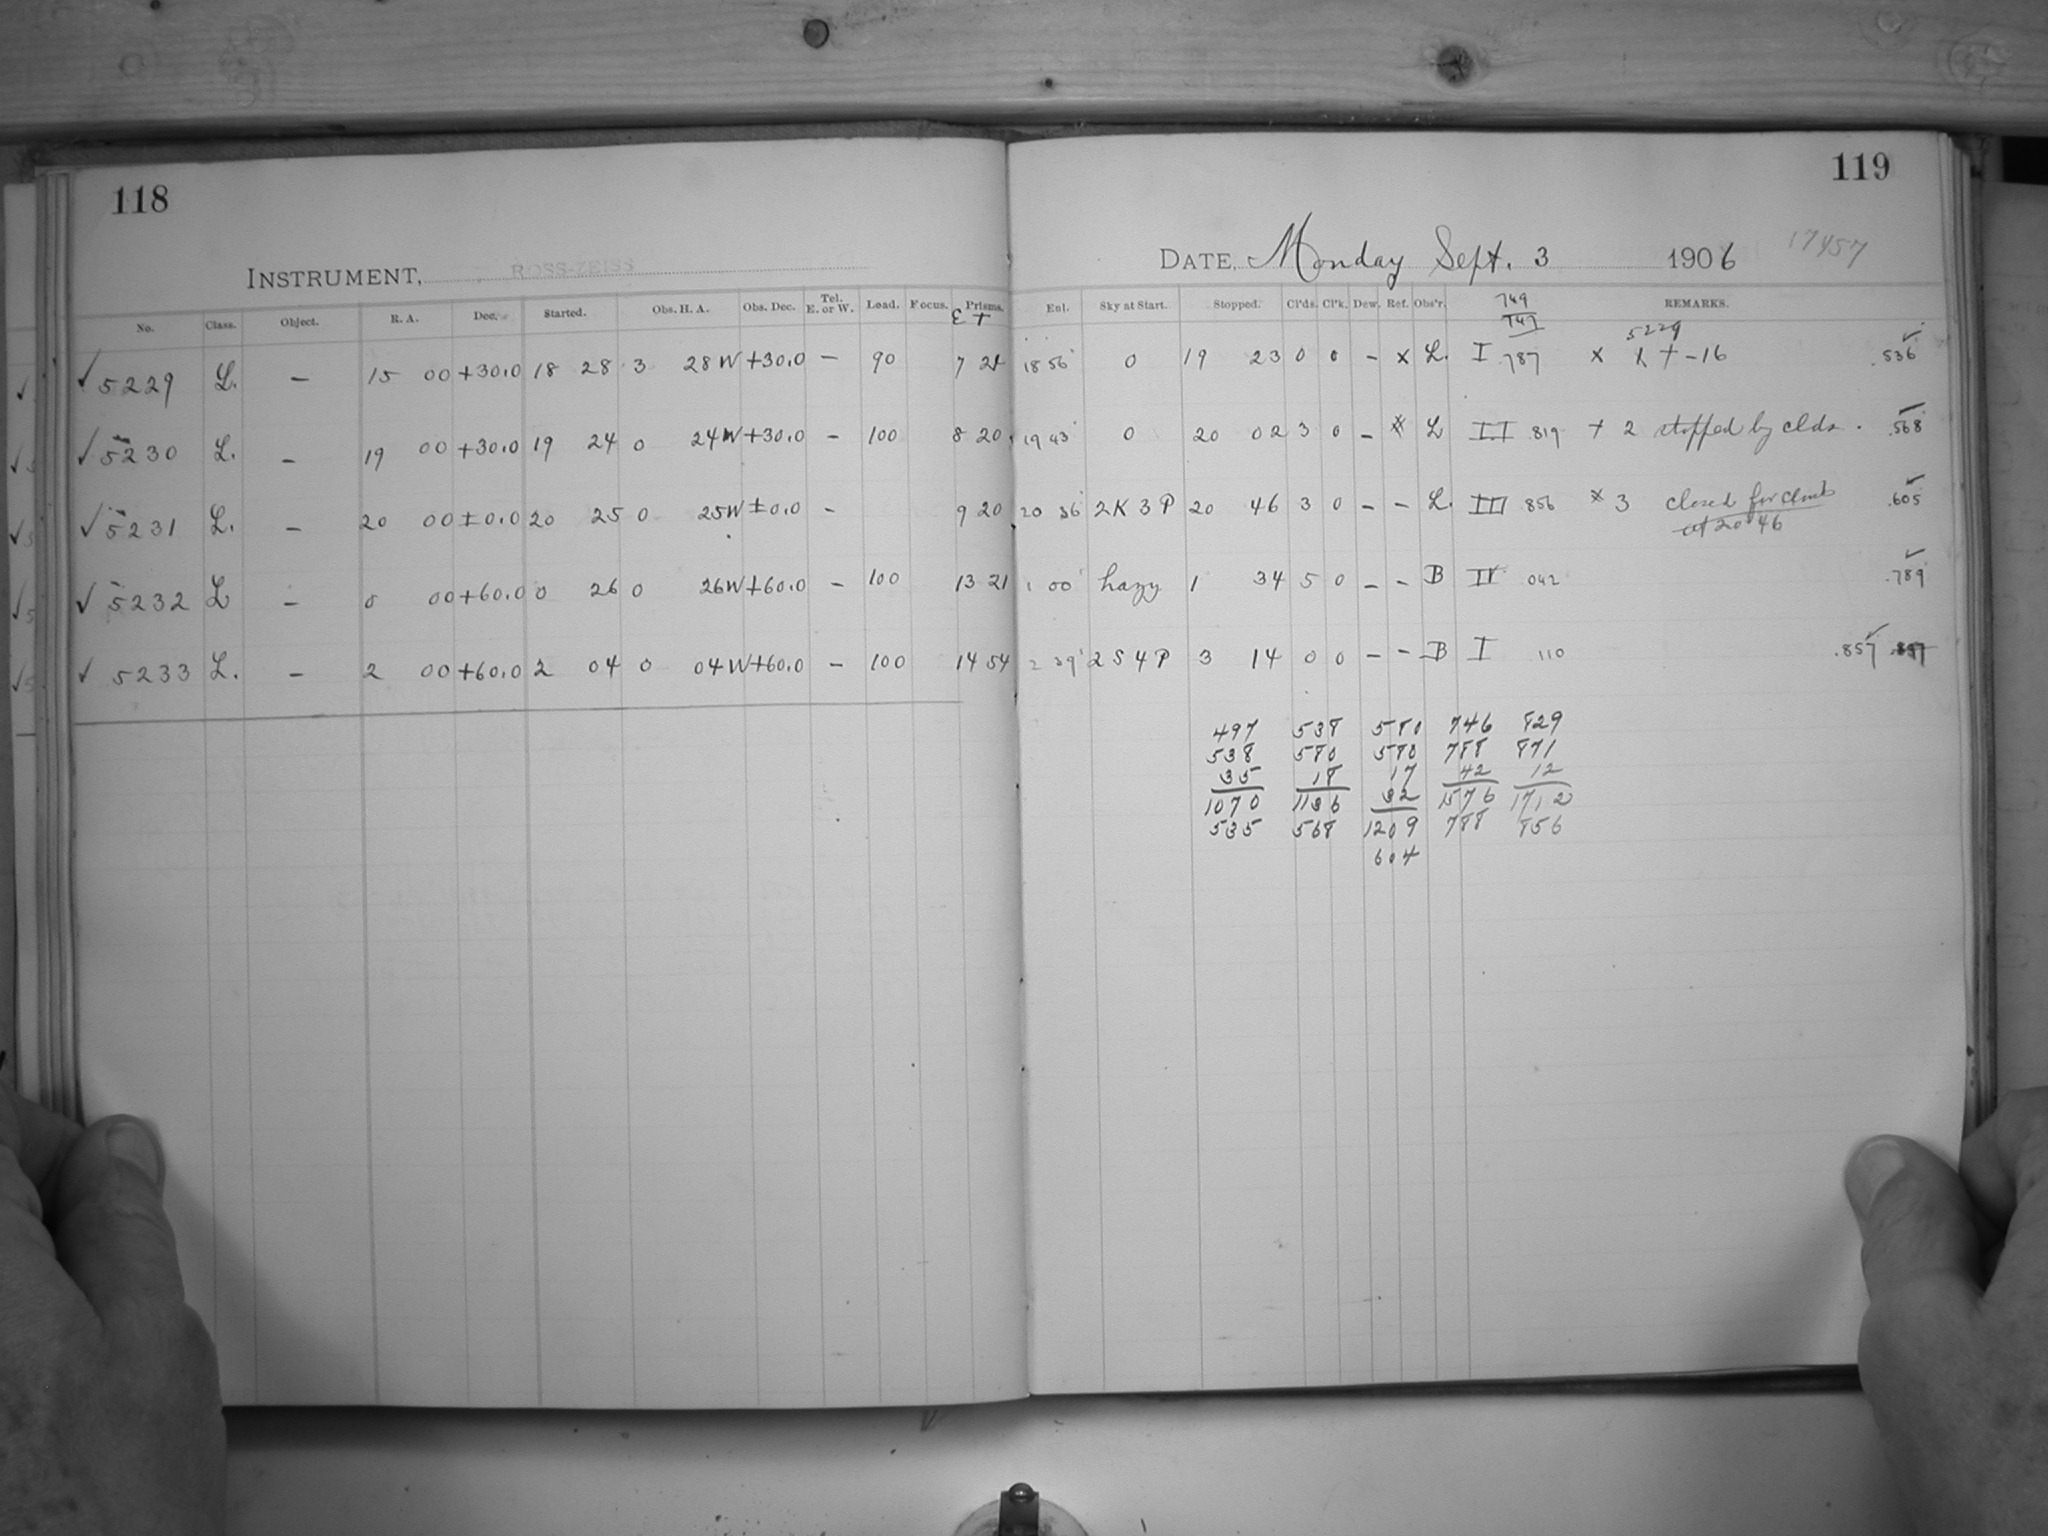 118
INSTRUMENT, ROSS-ZEISS
No. Class. Object. R. A. Dec. Started. Obs. H. A. Obs. Dec. Tel. E. or W. Load. Focus. Prisms.
E T
✓ 5229 L. — 15 00 +30.0 18 28 3 28 W +30.0 — 90 7 21
✓ 5230 L. — 19 00 +30.0 19 24 0 24 W +30.0 — 100 8 20
✓ 5231 L. — 20 00 ±0.0 20 25 0 25 W ±0.0 — 9 20
✓ 5232 L — 0 00 +60.0 0 26 0 26 W +60.0 — 100 13 21
✓ 5233 L. — 2 00 +60.0 2 04 0 04 W +60.0 — 100 14 54
119
DATE, Monday Sept. 3 1906 17457
Enl. Sky at Start. Stopped. Cl'ds. Cl'k. Dew. Ref. Obs'r. REMARKS.
749
747
5229
18 56 0 19 23 0 0 — x L. I .787 x x + -16 .536 ✓
19 43 0 20 02 3 0 — x L II .819 + 2 stopped by clds. .568
20 36 2K 3P 20 46 3 0 — — L. III 856 x 3 closed for clouds .605 ✓
at 20 46
1 00 hazy 1 34 5 0 — — B II 042 .789 ✓
2 39 2S 4P 3 14 0 0 — — B I .110 .857 ✓
497 538 580 746 829
538 580 580 788 871
35 18 17 42 12
1070 1136 32 1576 1712
535 568 1209 788 856
604